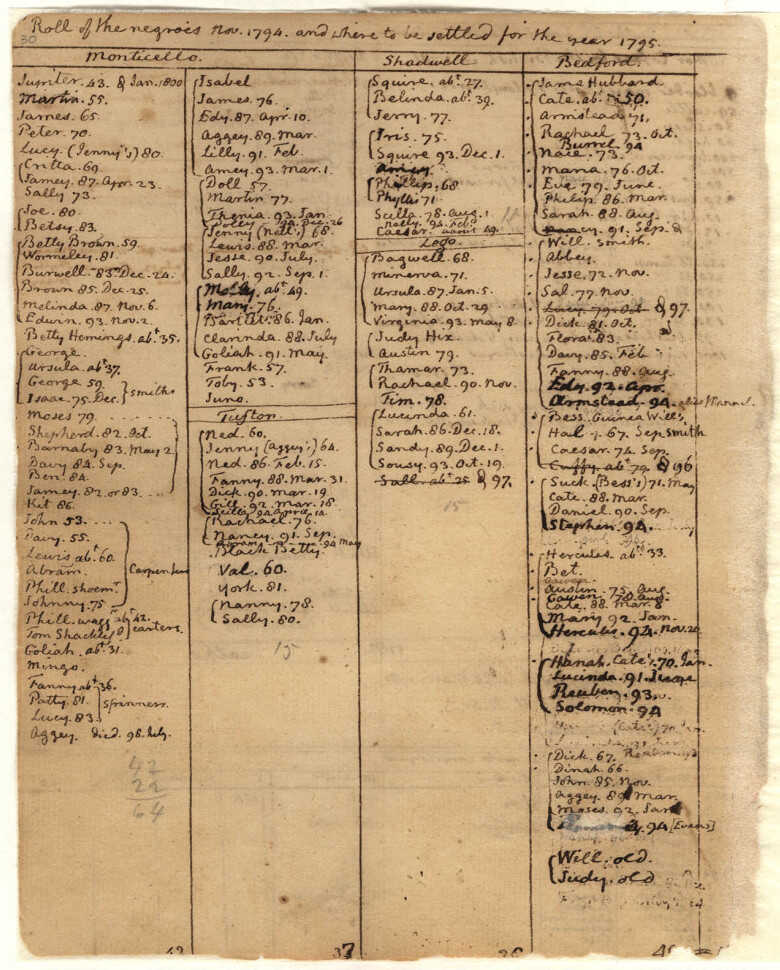 Roll of the negroes Nov. 1794. and where to be settled for the year 1795.
30
Monticello.
Jupiter. 43. & Jan. 1800
Martin. 55.
James. 65
Peter. 70.
Lucy (Jenny's) 80.
Critta. 69.
Jamey. 87. Apr. 23.
Sally 73.
Joe. 80.
Betsy. 83.
Betty Brown. 59.
Wormeley. 81.
Burwell. 83. Dec. 24.
Brown. 85. Dec. 25.
Melinda. 87. Nov. 6.
Edwin. 93. Nov. 2.
Betty Hemings. abt 35.
George.
Ursula. abt 37.
George 59.
Isaac. 75. Dec.
smiths
Moses 79.
Shepherd. 82. Oct.
Barnaby 83. May 2
Davy 84. Sep.
Ben. 84.
Jamey. 82. or 83.
Kit 86.
John 53.
Davy. 55.
Lewis abt. 60.
Abram.
Phill. shoemr.
Johnny. 75
Carpenters
Phill. wagg abt 42.
Tom Shackley
carters.
Goliah. abt 31.
Mingo.
Fanny abt 36.
Patty. 81.
Lucy. 83.
spinners.
Aggey. died. 98. July.
42
22
64
Isabel
James. 76.
Edy. 87. Apr. 10.
Aggey. 89. Mar.
Lilly. 91. Feb.
Amey. 93. Mar. 1.
Doll 57.
Martin 77.
Thenia. 93. Jan.
Dolly. 94. Dec. 26
Jenny (Ned's) 68.
Lewis. 88. Mar.
Jesse. 90. July.
Sally. 92. Sep. 1.
Molly. abt 49.
Mary. 76.
Bartlet. 86. Jan.
Clarinda. 88. July
Goliah. 91. May.
Frank. 57.
Toby. 53.
Juno.
Tufton.
Ned. 60.
Jenny (Aggy's) 64.
Ned. 86. Feb. 15.
Fanny. 88. Mar. 31.
Dick. 90. Mar. 19.
Gill. 92. Mar. 18.
Scilla. 94. April. 12
Rachael. 76.
Nancy. 91. Sep.
Abram. 94 May
Black Betty.
Val. 60.
York. 81.
Nanny. 78.
Sally. 80.
15
37
Shadwell
Squire. abt. 27.
Belinda. abt. 39.
Jerry. 77.
Iris. 75.
Squire 93. Dec. 1.
Phillip. 68.
Phyllis. 71
Scilla. 78. Aug. 1
Nelly. 94. Feb.
Caesar. about 49.
Lego.
Bagwell. 68.
Minerva. 71.
Ursula. 87. Jan. 5.
Mary. 88. Oct. 29
Virginia. 93. May 8
Judy Hix
Austin 79.
Thamar. 73.
Rachael. 90. Nov.
Tim. 78.
Lucinda. 61.
Sarah. 86. Dec. 18.
Sandy. 89. Dec. 1.
Sousy. 93. Oct. 19.
Sall. abt. 25 & 97.
15
Bedford.
Jame Hubbard.
Cate. abt. 50.
Armstead 71.
Rachael 73. Oct.
Burrel. 94
Nace. 73.
Maria. 76. Oct.
Eve 79. June.
Philip. 86. Mar.
Sarah. 88. Aug.
Will. smith.
Abbey.
Jesse. 72. Nov.
Sal. 77. Nov.
Lucy. 79. Oct & 97.
Dick. 81. Oct.
Flora. 83.
Davy. 85. Feb
Fanny. 88. Aug.
Edy. 92. Apr.
Armstead. 94.
Bess. Guinea Will's,
Hal. 67. Sep. smith
Caesar. 74. Sep.
Cuffy. abt 79. & 96
Suck. (Bess's) 71. May
Cate. 88. Mar.
Daniel. 90. Sep.
Stephen. 94.
Hercules. abt 33.
Bet.
Austin. 75. Aug.
Gawen. 78. Aug.
Cate. 88. Mar. 8
Mary 92. Jan.
Hercules. 94. Nov. 20
Hanah. Cate's. 70. Jan.
Lucinda. 91.
Reuben. 93.
Solomon. 94
Dick. 67.
Dinah 66.
John. 85. Nov.
Aggey. 89. Mar.
Moses. 92. Jan.
94 [Evans]
Will. old.
Judy. old